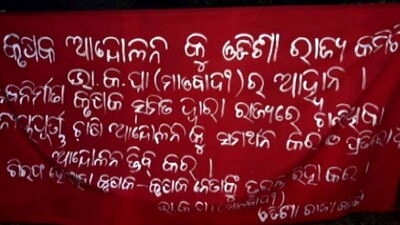 କୃଷକ ଆନ୍ଦୋଳନ କୁ ଓଡିଶା ରାଜ୍ୟ କମିଟି
ଭା.କ.ପା (ମାଓବାଦୀ) ର ଆହ୍ବାନ ।
କୃଷକ ଦ୍ୱାରା ରାଜ୍ୟରେ ଚାଲିଥିବା
ଚାଷୀ ଆନ୍ଦୋଳନ କୁ ସମର୍ଥନ କରି ଓ ପ୍ରତିରୋଧ
ଆନ୍ଦୋଳନ ତିବ୍ର କର ।
ଗିରଫ କୃଷକ-କୃଷକ ନେତାଙ୍କୁ କର ।
ଭା.କ.ପା (ମାଓବାଦୀ) ଓଡିଶା ରାଜ୍ୟ କମିଟି